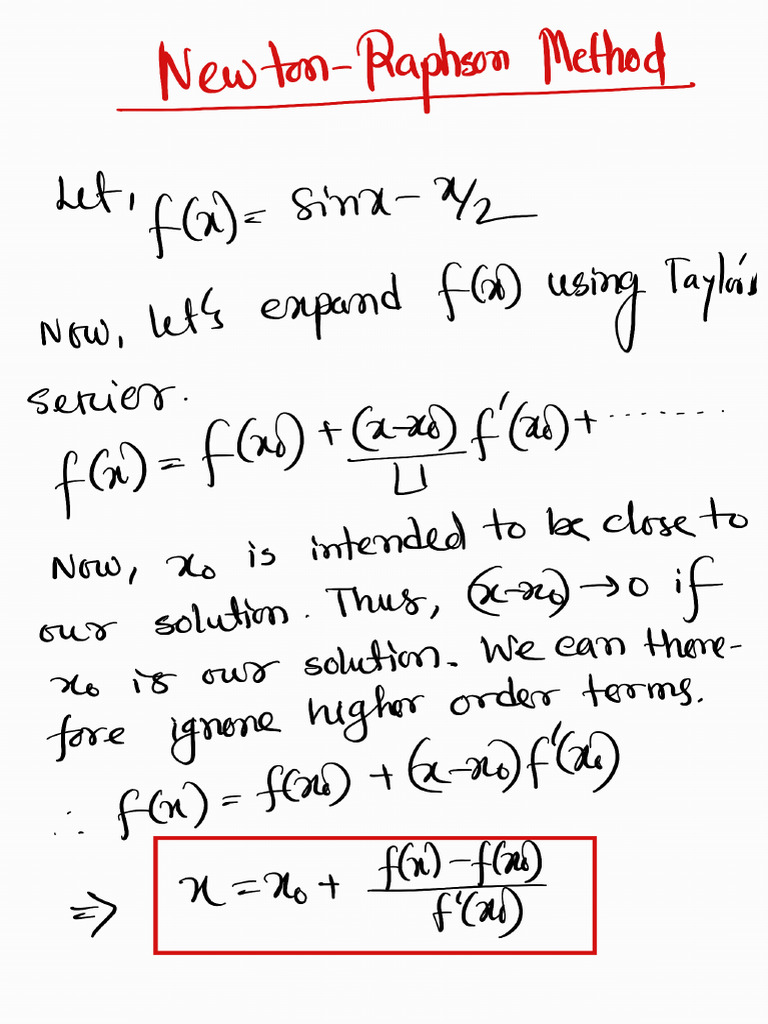 Newton-Raphson Method
Let, f(x) = sinx - x/2
Now, let's expand f(x) using Taylor's
series.
f(x) = f(x₀) + (x-x₀)/⌊1 f'(x₀) + .......
Now, x₀ is intended to be close to
our solution. Thus, (x-x₀) → 0 if
x₀ is our solution. We can there-
fore ignore higher order terms.
∴ f(x) = f(x₀) + (x-x₀) f'(x₀)
⇒ x = x₀ + (f(x) - f(x₀))/f'(x₀)